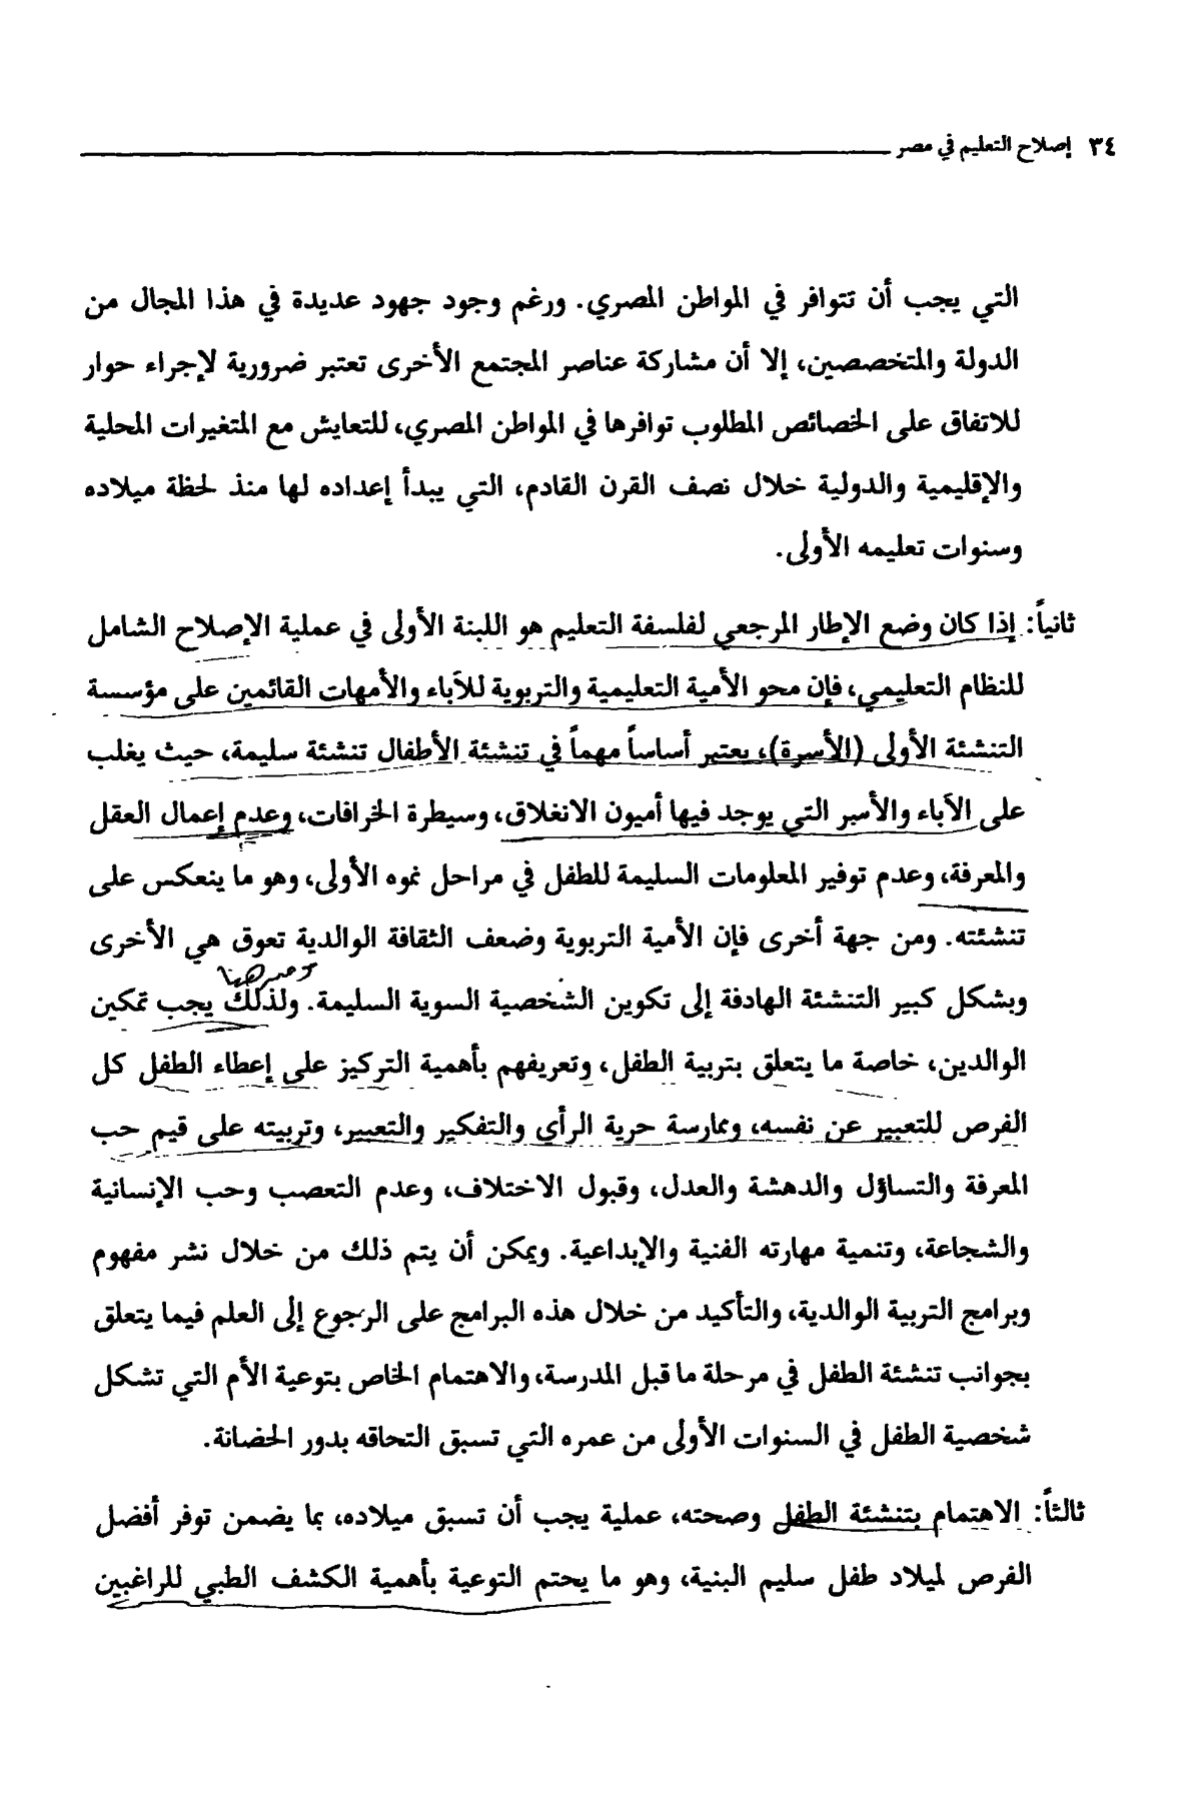 ٣٤ إصلاح التعليم في مصر
التي يجب أن تتوافر في المواطن المصري. ورغم وجود جهود عديدة في هذا المجال من
الدولة والمتخصصين، إلا أن مشاركة عناصر المجتمع الأخرى تعتبر ضرورية لإجراء حوار
للاتفاق على الخصائص المطلوب توافرها في المواطن المصري، للتعايش مع المتغيرات المحلية
والإقليمية والدولية خلال نصف القرن القادم، التي يبدأ إعداده لها منذ لحظة ميلاده
وسنوات تعليمه الأولى.
ثانياً: إذا كان وضع الإطار المرجعي لفلسفة التعليم هو اللبنة الأولى في عملية الإصلاح الشامل
للنظام التعليمي، فإن محو الأمية التعليمية والتربوية للآباء والأمهات القائمين على مؤسسة
التنشئة الأولى (الأسرة)، يعتبر أساساً مهماً في تنشئة الأطفال تنشئة سليمة، حيث يغلب
على الآباء والأسر التي يوجد فيها أميون الانغلاق، وسيطرة الخرافات، وعدم إعمال العقل
والمعرفة، وعدم توفير المعلومات السليمة للطفل في مراحل نموه الأولى، وهو ما ينعكس على
تنشئته. ومن جهة أخرى فإن الأمية التربوية وضعف الثقافة الوالدية تعوق هي الأخرى
وبشكل كبير التنشئة الهادفة إلى تكوين الشخصية السوية السليمة. ولذلك يجب تمكين
الوالدين، خاصة ما يتعلق بتربية الطفل، وتعريفهم بأهمية التركيز على إعطاء الطفل كل
الفرص للتعبير عن نفسه، وممارسة حرية الرأي والتفكير والتعبير، وتربيته على قيم حب
المعرفة والتساؤل والدهشة والعدل، وقبول الاختلاف، وعدم التعصب وحب الإنسانية
والشجاعة، وتنمية مهارته الفنية والإبداعية. ويمكن أن يتم ذلك من خلال نشر مفهوم
وبرامج التربية الوالدية، والتأكيد من خلال هذه البرامج على الرجوع إلى العلم فيما يتعلق
بجوانب تنشئة الطفل في مرحلة ما قبل المدرسة، والاهتمام الخاص بتوعية الأم التي تشكل
شخصية الطفل في السنوات الأولى من عمره التي تسبق التحاقه بدور الحضانة.
ثالثاً: الاهتمام بتنشئة الطفل وصحته، عملية يجب أن تسبق ميلاده، بما يضمن توفر أفضل
الفرص لميلاد طفل سليم البنية، وهو ما يحتم التوعية بأهمية الكشف الطبي للراغبين